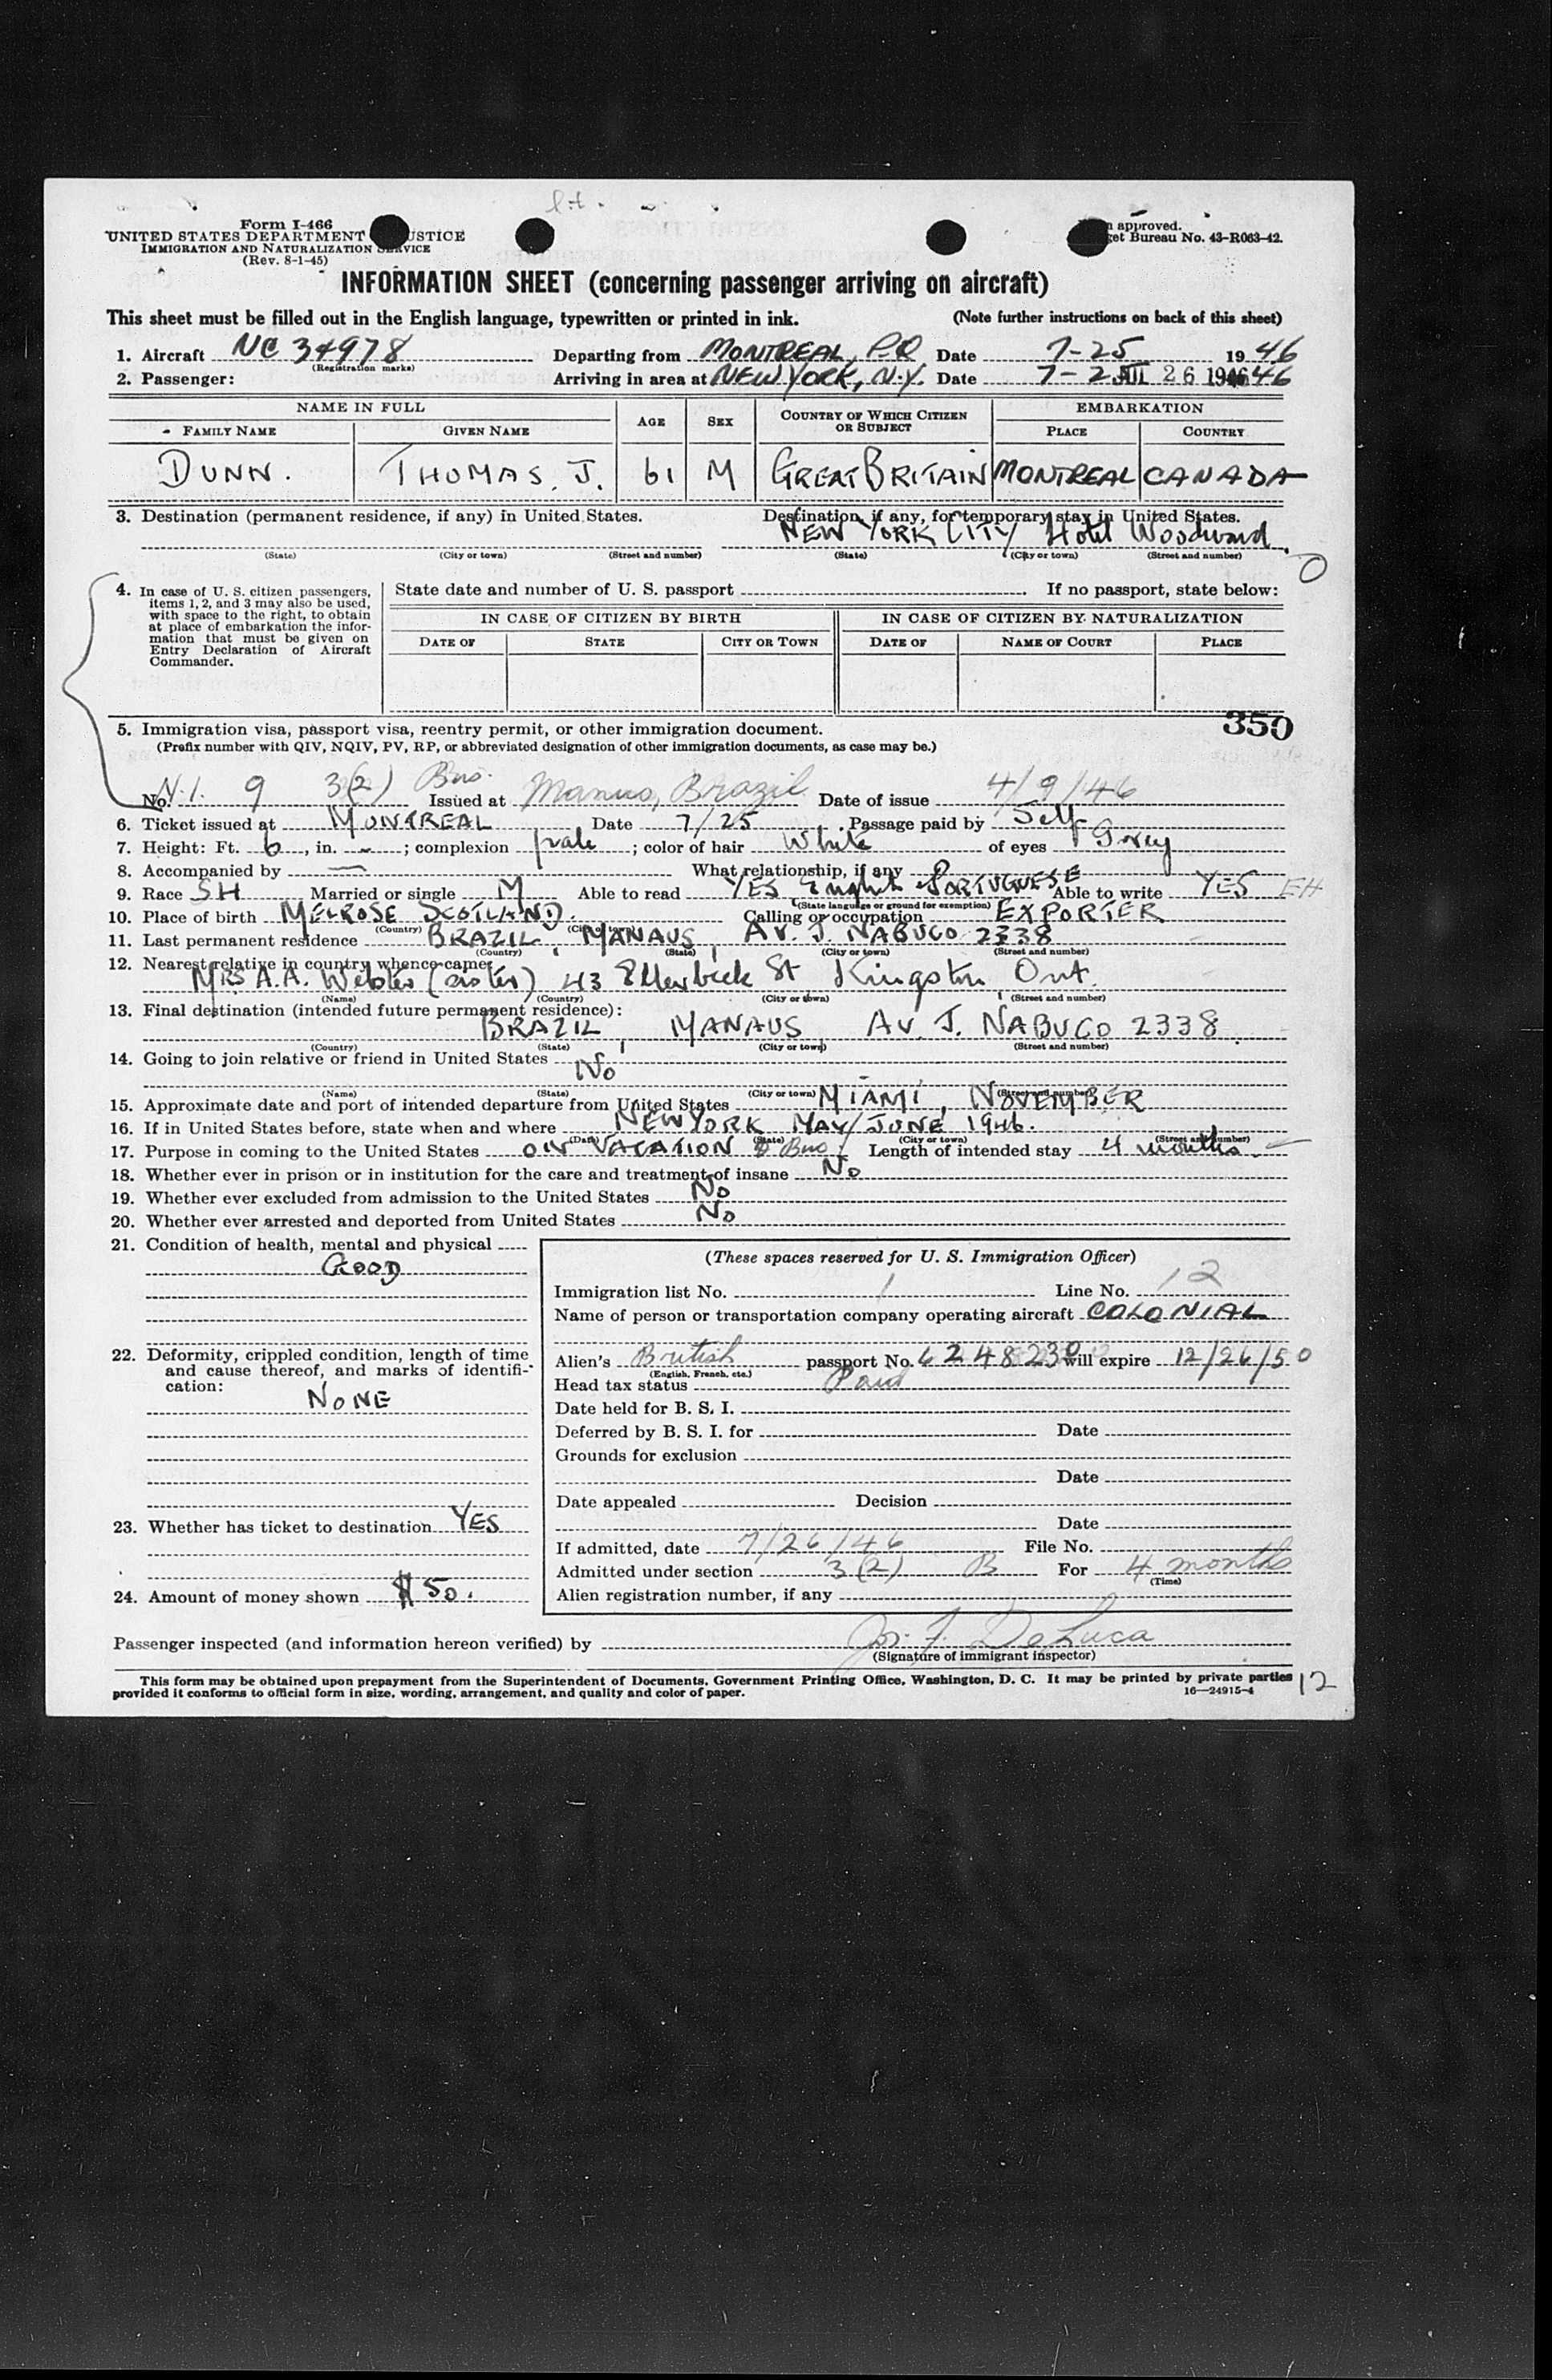 Form I-466
UNITED STATES DEPARTMENT JUSTICE
IMMIGRATION AND NATURALIZATION SERVICE
(Rev. 8-1-45)
approved.
Bureau No. 43-R063-42.
INFORMATION SHEET (concerning passenger arriving on aircraft)
This sheet must be filled out in the English language, typewritten or printed in ink. (Note further instructions on back of this sheet)
1. Aircraft NC 34978 Departing from MONTREAL, P.Q Date 7-25 1946
(Registration marks)
2. Passenger: Arriving in area at NEW YORK, N.Y. Date 7-2 JUL 26 1946 46
NAME IN FULL AGE SEX COUNTRY OF WHICH CITIZEN OR SUBJECT EMBARKATION
FAMILY NAME GIVEN NAME PLACE COUNTRY
DUNN. THOMAS. J. 61 M GREAT BRITAIN MONTREAL CANADA
3. Destination (permanent residence, if any) in United States. Destination, if any, for temporary stay in United States.
NEW YORK CITY Hotel Woodward
(State) (City or town) (Street and number) (State) (City or town) (Street and number)
4. In case of U. S. citizen passengers, items 1, 2, and 3 may also be used, with space to the right, to obtain at place of embarkation the information that must be given on Entry Declaration of Aircraft Commander.
State date and number of U. S. passport If no passport, state below:
IN CASE OF CITIZEN BY BIRTH IN CASE OF CITIZEN BY NATURALIZATION
DATE OF STATE CITY OR TOWN DATE OF NAME OF COURT PLACE
350
5. Immigration visa, passport visa, reentry permit, or other immigration document.
(Prefix number with QIV, NQIV, PV, RP, or abbreviated designation of other immigration documents, as case may be.)
No. N.I. 9 3(2) Bus. Issued at Manus, Brazil Date of issue 4/9/46
6. Ticket issued at MONTREAL Date 7/25 Passage paid by Self
7. Height: Ft. 6, in. – ; complexion pale ; color of hair White of eyes Grey
8. Accompanied by — What relationship, if any
9. Race SH Married or single M Able to read YES English PORTUGUESE Able to write YES EH
(State language or ground for exemption)
10. Place of birth MELROSE SCOTLAND. Calling or occupation EXPORTER
(Country)
11. Last permanent residence BRAZIL, MANAUS, AV. J. NABUCO 2338
(Country) (State) (City or town) (Street and number)
12. Nearest relative in country whence came
MRS A.A. Webster (sister) 43 Ellerbeck St Kingston Ont.
(Name) (Country) (City or town) (Street and number)
13. Final destination (intended future permanent residence):
BRAZIL, MANAUS AV. J. NABUCO 2338
(Country) (State) (City or town) (Street and number)
14. Going to join relative or friend in United States No
(Name) (State) (City or town) (Street and number)
15. Approximate date and port of intended departure from United States MIAMI, NOVEMBER
16. If in United States before, state when and where NEW YORK MAY/JUNE 1946.
(Date) (State) (City or town) (Street and number)
17. Purpose in coming to the United States ON VACATION & Bus Length of intended stay 4 months.
18. Whether ever in prison or in institution for the care and treatment of insane No
19. Whether ever excluded from admission to the United States No
20. Whether ever arrested and deported from United States No
21. Condition of health, mental and physical
GOOD
22. Deformity, crippled condition, length of time and cause thereof, and marks of identification:
NONE
23. Whether has ticket to destination YES
24. Amount of money shown $50.
(These spaces reserved for U. S. Immigration Officer)
Immigration list No. 1 Line No. 12
Name of person or transportation company operating aircraft COLONIAL
Alien's British passport No. 6248230 will expire 12/26/50
(English, French, etc.)
Head tax status Paid
Date held for B. S. I.
Deferred by B. S. I. for Date
Grounds for exclusion
Date
Date appealed Decision
Date
If admitted, date 7/26/46 File No.
Admitted under section 3(2) B For 4 months
(Time)
Alien registration number, if any
Passenger inspected (and information hereon verified) by Jos. F. DeLuca
(Signature of immigrant inspector)
This form may be obtained upon prepayment from the Superintendent of Documents, Government Printing Office, Washington, D. C. It may be printed by private parties
provided it conforms to official form in size, wording, arrangement, and quality and color of paper. 16—24915-4
12